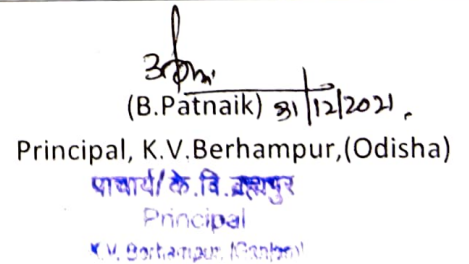 (B.Patnaik) 31/12/2021.
Principal, K.V.Berhampur,(Odisha)
प्राचार्य/के.वि.ब्रह्मपुर
Principal
K.V. Berhampur (Ganjam)